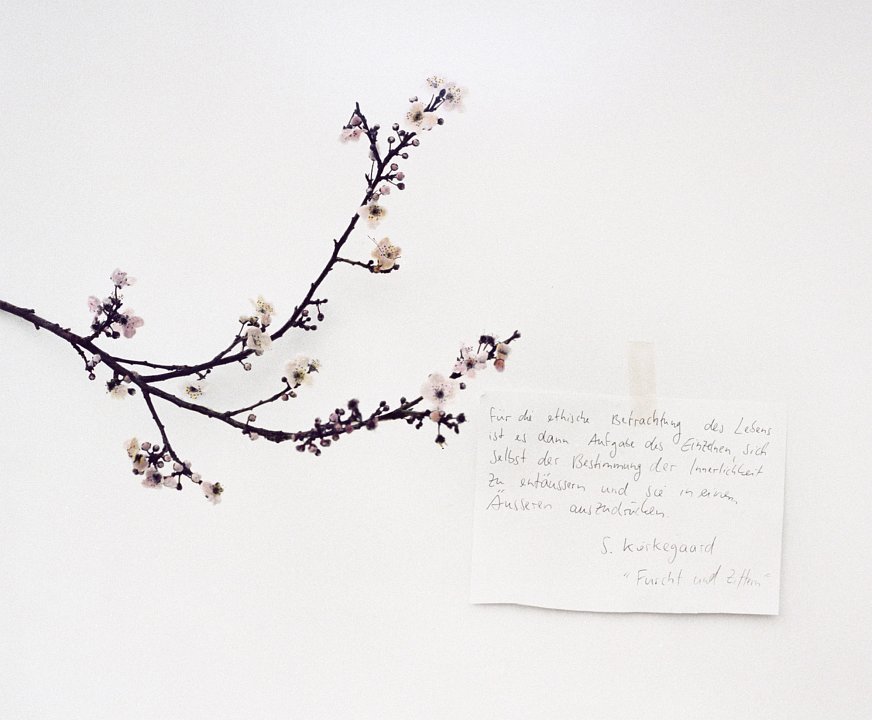 Für die ethische Betrachtung des Lebens
ist es dann Aufgabe des Einzelnen, sich
selbst der Bestimmung der Innerlichkeit
zu entäussern und sie in einem
Äusseren auszudrücken.
S. Kierkegaard
"Furcht und Zittern"